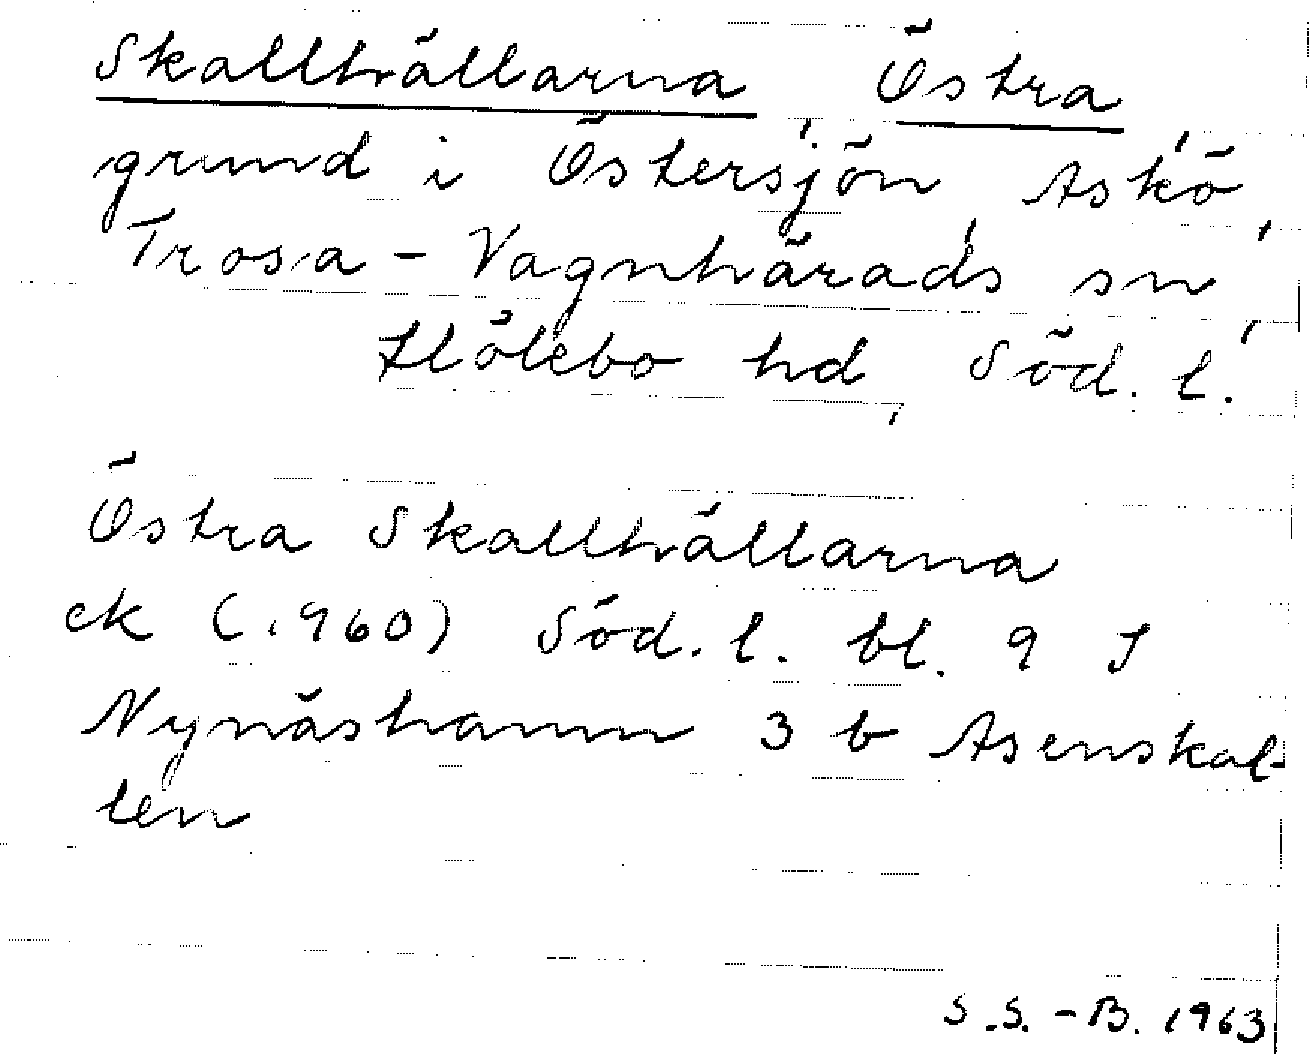 Skallhällarna Östra
grund i Östersjön, Askö,
Trosa-Vagnhärads sn,
Hölebo hd, Söd. l.
Östra Skallhällarna
ek (1960) Söd. l. bl. 9 I
Nynäshamn 3 b Asenskal-
len
S.S.-B. 1963